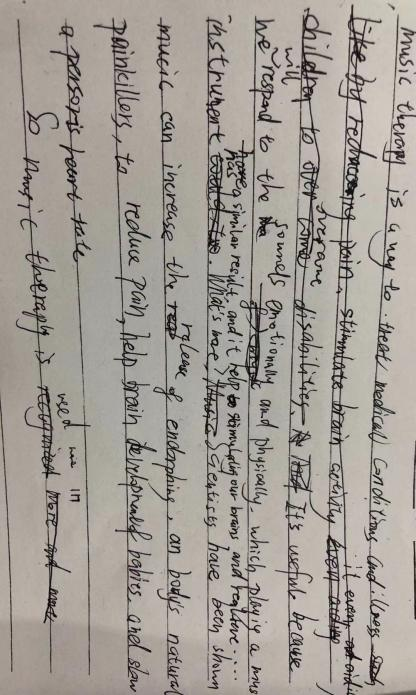 music therapy is a way to treat medical conditions and illness such
like by reducing pain, stimulate brain activity, it even aid
children to overcome disabilities. It's useful because
we will respond to the sounds emotionally and physically which playing a
instrument has similar result, and it help stimulating our brains and
What's more, Scientists have been shown
music can increase the release of endorphins, an body's natural
painkillers, to reduce pain, help brain development babies, and slow
a person's heart rate.
So music therapy is used in recognized more and more